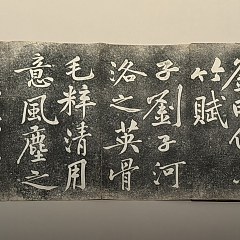 竹賦
子劉子河
洛之英骨
毛粹清用
意風塵之